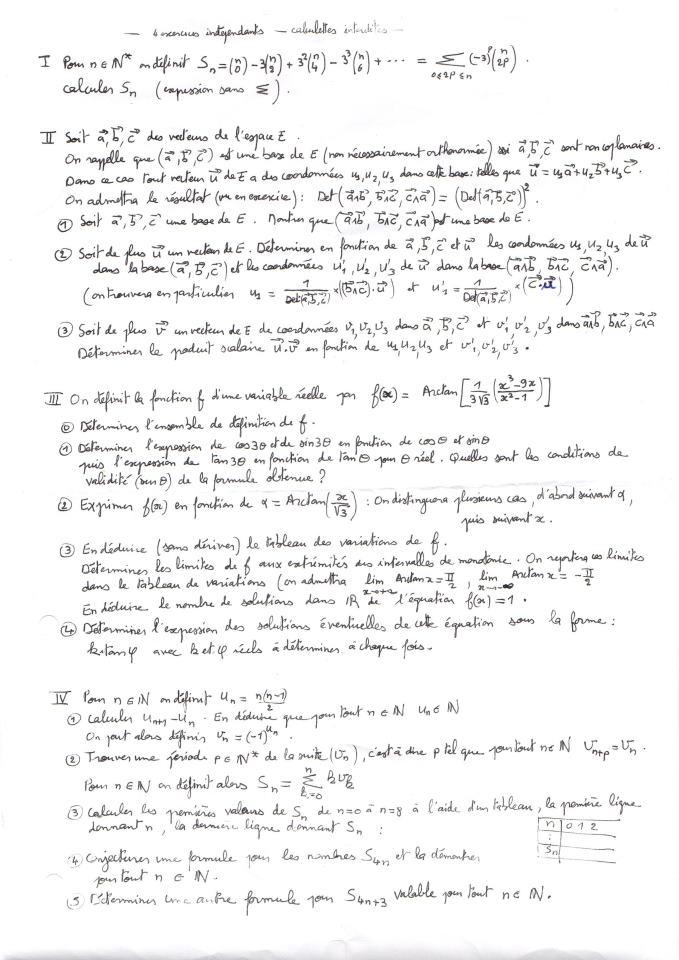 — 4 exercices indépendants — calculettes interdites —
I Pour n ∈ ℕ* on définit Sn = (n 0) - 3(n 2) + 3²(n 4) - 3³(n 6) + ... = Σ 0≤2p≤n (-3)^p (n 2p).
calculer Sn (expression sans Σ).
II Soit a⃗, b⃗, c⃗ des vecteurs de l'espace E.
On rappelle que (a⃗, b⃗, c⃗) est une base de E (non nécessairement orthonormée) ssi a⃗, b⃗, c⃗ sont non coplanaires.
Dans ce cas tout vecteur u⃗ de E a des coordonnées u1, u2, u3 dans cette base : telles que u⃗ = u1a⃗ + u2b⃗ + u3c⃗.
On admettra le résultat (vu en exercice) : Det(a⃗∧b⃗, b⃗∧c⃗, c⃗∧a⃗) = (Det(a⃗, b⃗, c⃗))².
① Soit a⃗, b⃗, c⃗ une base de E. Montrer que (a⃗∧b⃗, b⃗∧c⃗, c⃗∧a⃗) est une base de E.
② Soit de plus u⃗ un vecteur de E. Déterminer en fonction de a⃗, b⃗, c⃗ et u⃗ les coordonnées u1, u2, u3 de u⃗
dans la base (a⃗, b⃗, c⃗) et les coordonnées u'1, u'2, u'3 de u⃗ dans la base (a⃗∧b⃗, b⃗∧c⃗, c⃗∧a⃗).
(on trouvera en particulier u1 = 1/Det(a⃗, b⃗, c⃗) × ((b⃗∧c⃗)·u⃗) et u'1 = 1/Det(a⃗, b⃗, c⃗) × (c⃗·u⃗))
③ Soit de plus v⃗ un vecteur de E de coordonnées v1, v2, v3 dans a⃗, b⃗, c⃗ et v'1, v'2, v'3 dans a⃗∧b⃗, b⃗∧c⃗, c⃗∧a⃗
Déterminer le produit scalaire u⃗·v⃗ en fonction de u1, u2, u3 et v'1, v'2, v'3.
III On définit la fonction f d'une variable réelle par f(x) = Arctan[1/(3√3) ((x³-9x)/(x²-1))]
⓪ Déterminer l'ensemble de définition de f.
① Déterminer l'expression de cos3θ et de sin3θ en fonction de cosθ et sinθ
puis l'expression de tan3θ en fonction de tanθ pour θ réel. Quelles sont les conditions de
validité (sur θ) de la formule obtenue ?
② Exprimer f(x) en fonction de α = Arctan(x/√3) : On distinguera plusieurs cas, d'abord suivant α,
puis suivant x.
③ En déduire (sans dériver) le tableau des variations de f.
Déterminer les limites de f aux extrémités des intervalles de monotonie. On reportera ces limites
dans le tableau de variations (on admettra lim x→+∞ Arctan x = π/2, lim x→-∞ Arctan x = -π/2
En déduire le nombre de solutions dans ℝ de l'équation f(x) = 1.
④ Déterminer l'expression des solutions éventuelles de cette équation sous la forme :
k tan φ avec k et φ réels à déterminer à chaque fois.
IV Pour n ∈ ℕ on définit un = n(n-1)/2
① Calculer un+1 - un. En déduire que pour tout n ∈ ℕ un ∈ ℕ
On peut alors définir vn = (-1)^un.
② Trouver une période p ∈ ℕ* de la suite (vn), c'est à dire p tel que pour tout n ∈ ℕ vn+p = vn.
Pour n ∈ ℕ on définit alors Sn = Σ k=0 n k vk
③ Calculer les premières valeurs de Sn de n=0 à n=8 à l'aide d'un tableau, la première ligne
donnant n, la dernière ligne donnant Sn :
n 0 1 2
:
Sn
④ Conjecturer une formule pour les nombres S4n et la démontrer
pour tout n ∈ ℕ.
⑤ Déterminer une autre formule pour S4n+3 valable pour tout n ∈ ℕ.